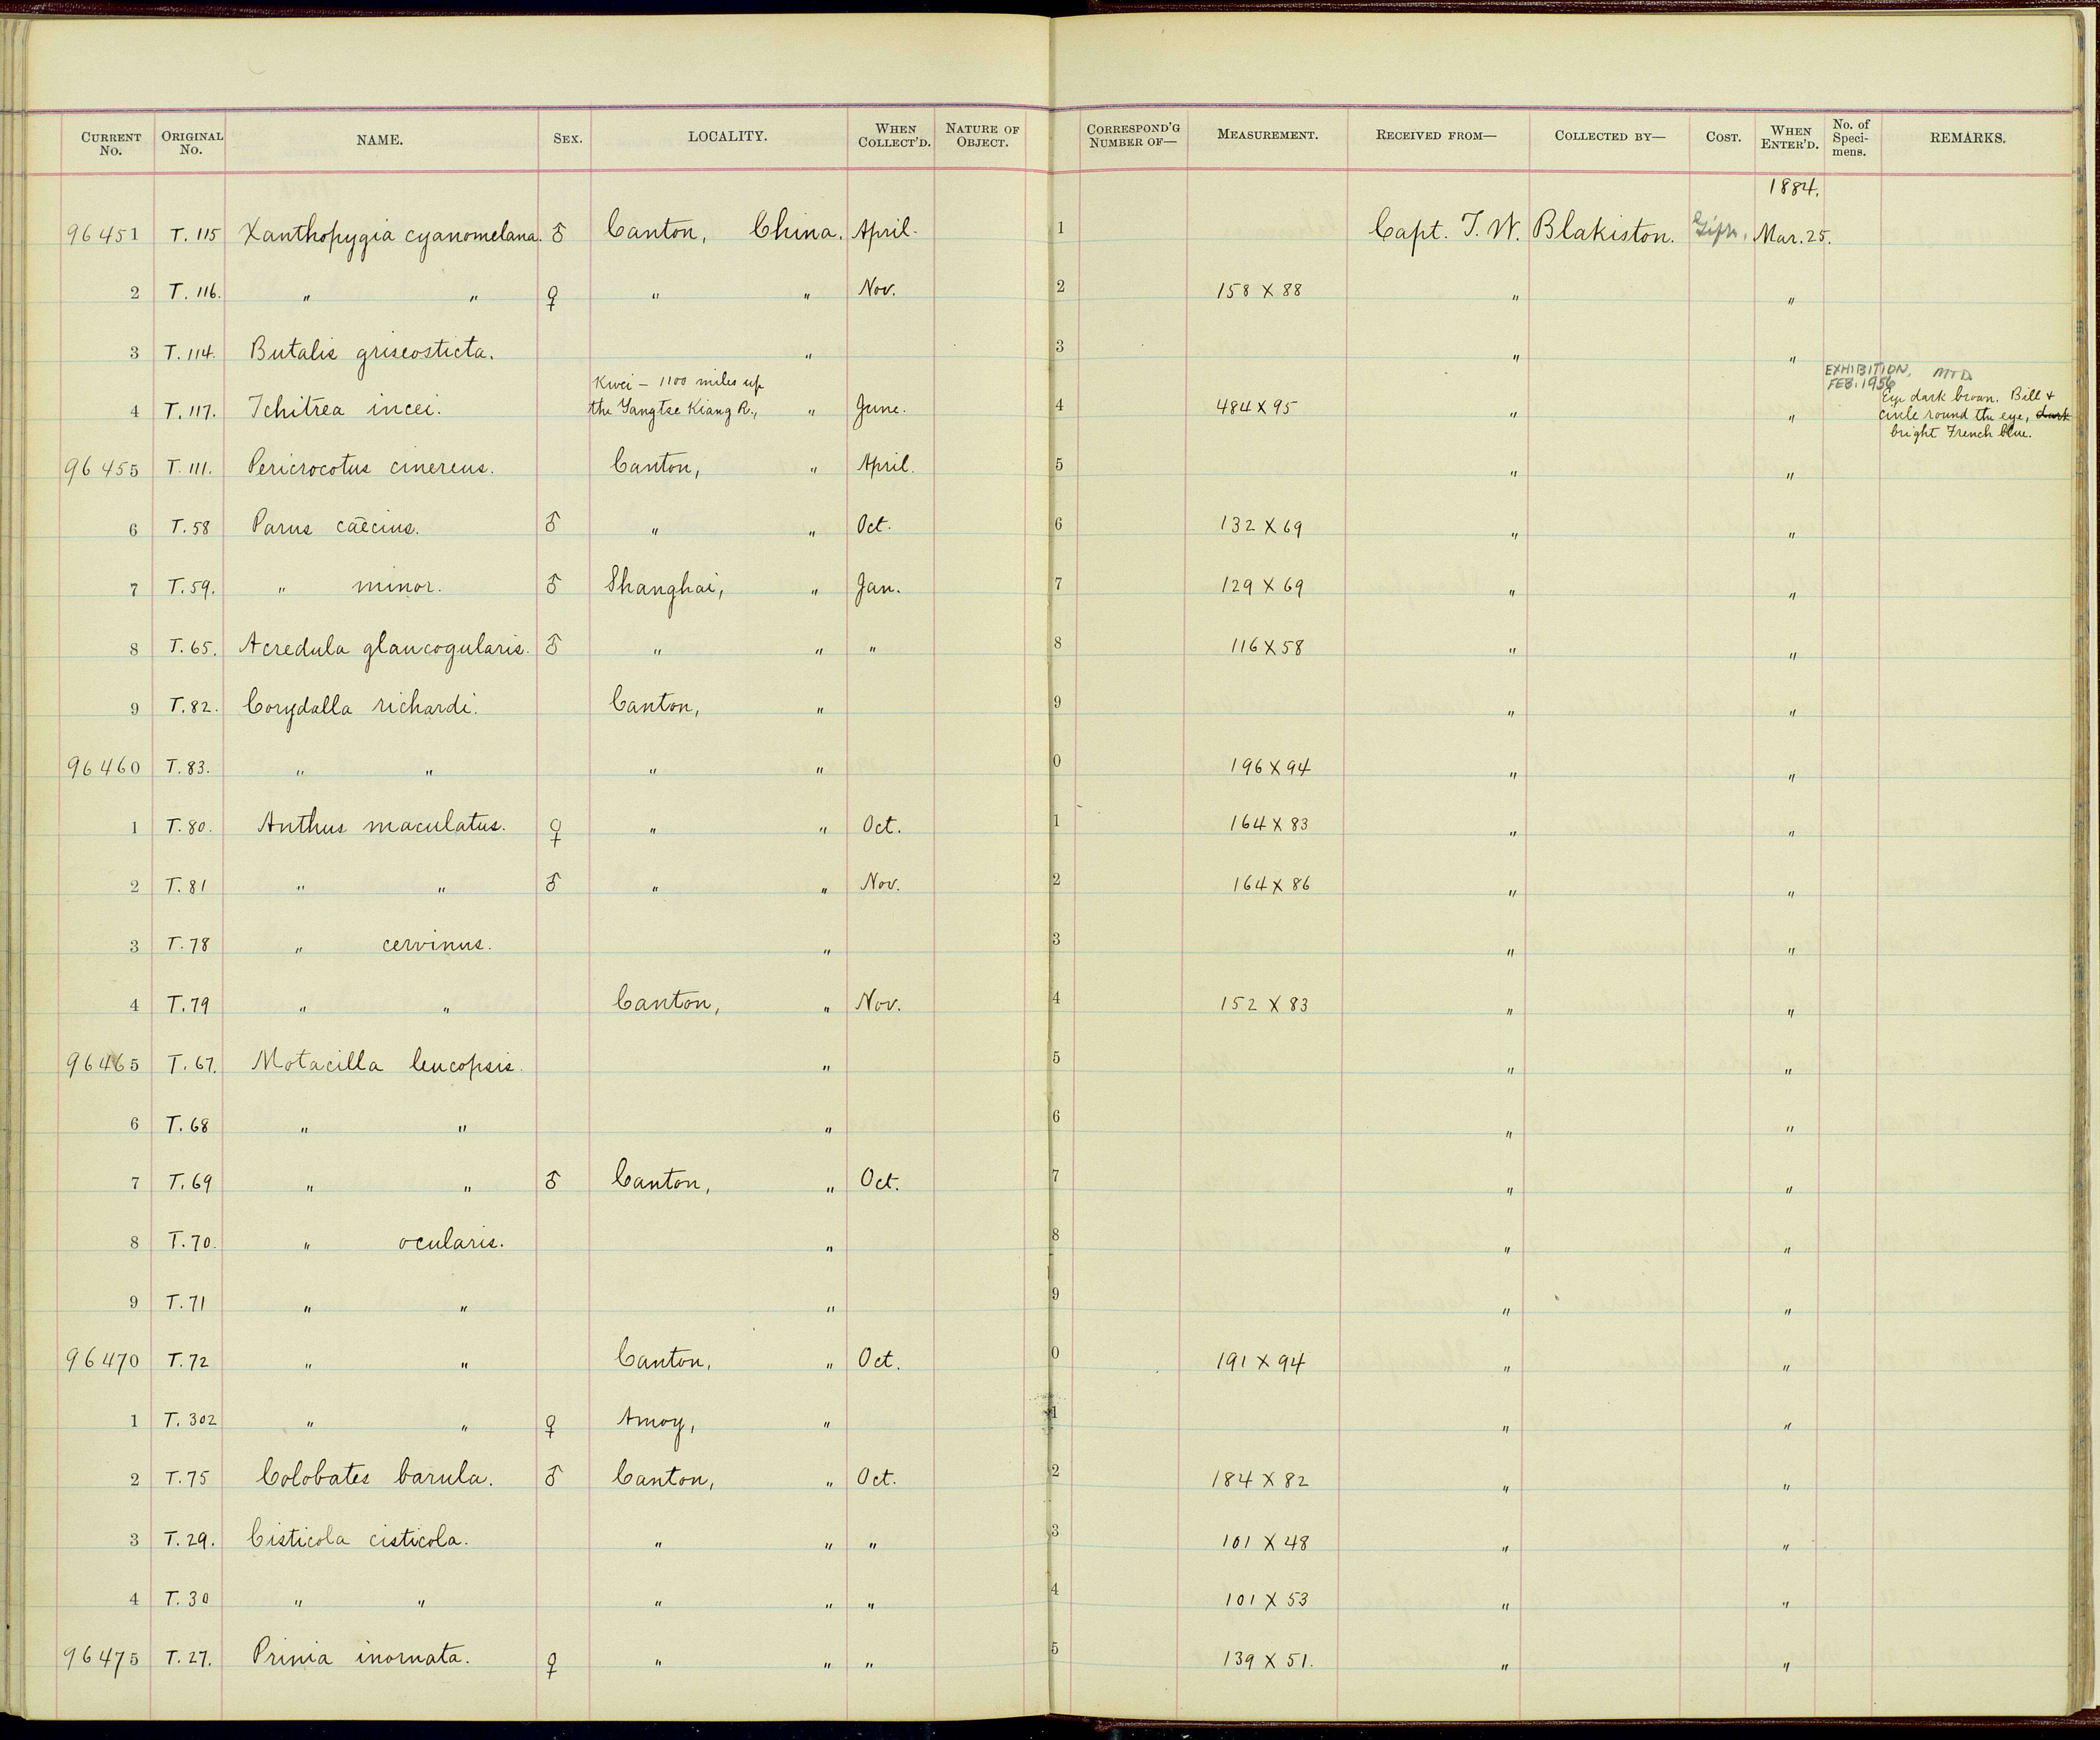 CURRENT No. ORIGINAL No. NAME. SEX. LOCALITY. WHEN COLLECT'D. NATURE OF OBJECT. CORRESPOND'G NUMBER OF— MEASUREMENT. RECEIVED FROM— COLLECTED BY— COST. WHEN ENTER'D. No. of Speci-mens. REMARKS.
1884.
96451 T. 115 Xanthopygia cyanomelana. ♂ Canton, China. April. 1 Capt. T. W. Blakiston. Mar. 25.
2 T. 116. " " ♀ " " Nov. 2 158 X 88 " "
3 T. 114. Butalis griseosticta. " 3 " "
EXHIBITION, FEB. 1956 MTD
Kwei – 1100 miles up
4 T. 117. Tchitrea incei. the Yangtse Kiang R., " June. 4 484 X 95 " " Eye dark brown. Bill + circle round the eye, dark bright French blue.
96455 T. 111. Pericrocotus cinereus. Canton, " April. 5 " "
6 T. 58 Parus caecius. ♂ " " Oct. 6 132 X 69 " "
7 T. 59. " minor. ♂ Shanghai, " Jan. 7 129 X 69 " "
8 T. 65. Acredula glaucogularis. ♂ " " " 8 116 X 58 " "
9 T. 82. Corydalla richardi. Canton, " 9 " "
96460 T. 83. " " " " 0 196 X 94 " "
1 T. 80. Anthus maculatus. ♀ " " Oct. 1 164 X 83 " "
2 T. 81 " " ♂ " " Nov. 2 164 X 86 " "
3 T. 78 " cervinus. " 3 " "
4 T. 79 " " Canton, " Nov. 4 152 X 83 " "
96465 T. 67. Motacilla leucopsis. " 5 " "
6 T. 68 " " " 6 " "
7 T. 69 " " ♂ Canton, " Oct. 7 " "
8 T. 70. " ocularis. " 8 " "
9 T. 71 " " " 9 " "
96470 T. 72 " " Canton, " Oct. 0 191 X 94 " "
1 T. 302 " " ♀ Amoy, " 1 " "
2 T. 75 Colobates barula. ♂ Canton, " Oct. 2 184 X 82 " "
3 T. 29. Cisticola cisticola. " " " 3 101 X 48 " "
4 T. 30 " " " " " 4 101 X 53 " "
96475 T. 27. Prinia inornata. ♀ " " " 5 139 X 51. " "